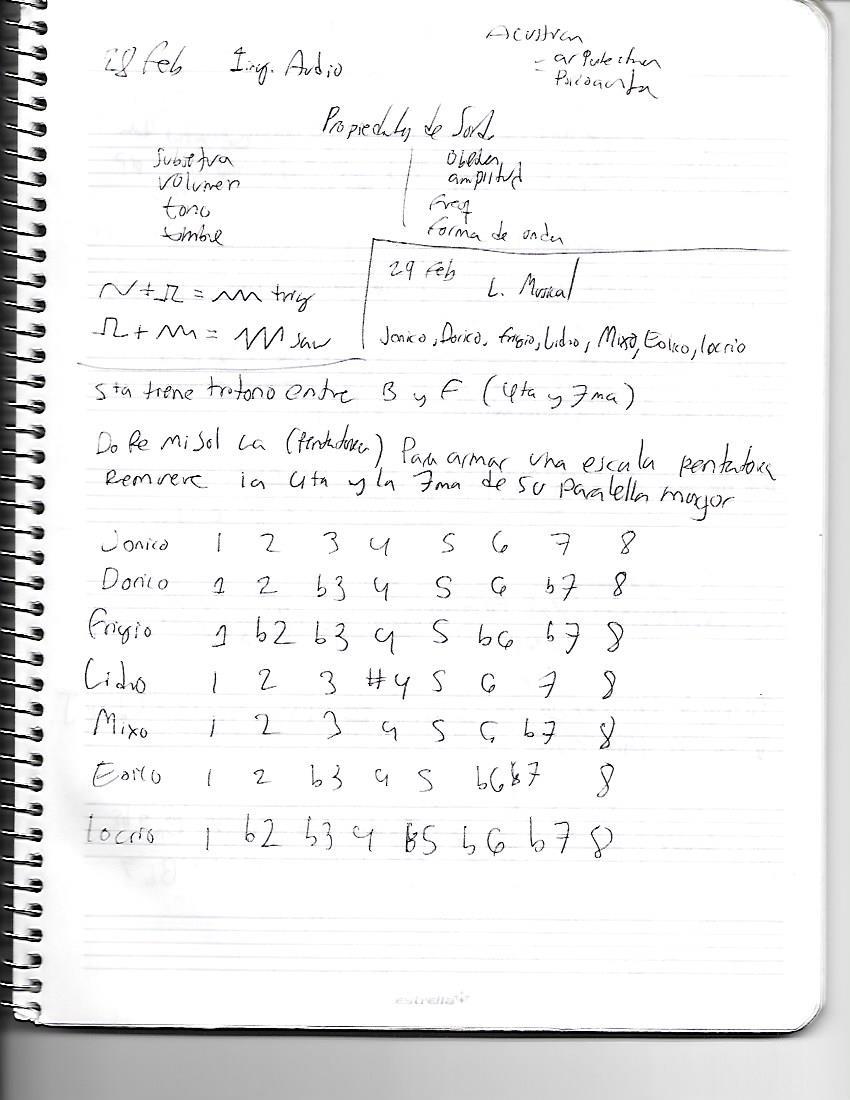 28 Feb Ing. Audio
Acustica
- arquitectura
Psicoacustica
Propiedades de Sonido
Subjetiva
Volumen
tono
timbre
Objetiva
amplitud
Freq
Forma de onda
+ = trig
+ = saw
29 Feb L. Musical
Jonico, Dorico, frigio, Lidio, Mixo, Eolico, locrio
5ta tiene tritono entre B y F (4ta y 7ma)
Do Re Mi Sol La (Pentatonica) Para armar una escala pentatonica
Remueve la 4ta y la 7ma de su paralella mayor
Jonico 1 2 3 4 5 6 7 8
Dorico 1 2 b3 4 5 6 b7 8
Frigio 1 b2 b3 4 5 b6 b7 8
Lidio 1 2 3 #4 5 6 7 8
Mixo 1 2 3 4 5 6 b7 8
Eolico 1 2 b3 4 5 b6 b7 8
locrio 1 b2 b3 4 b5 b6 b7 8
estrella